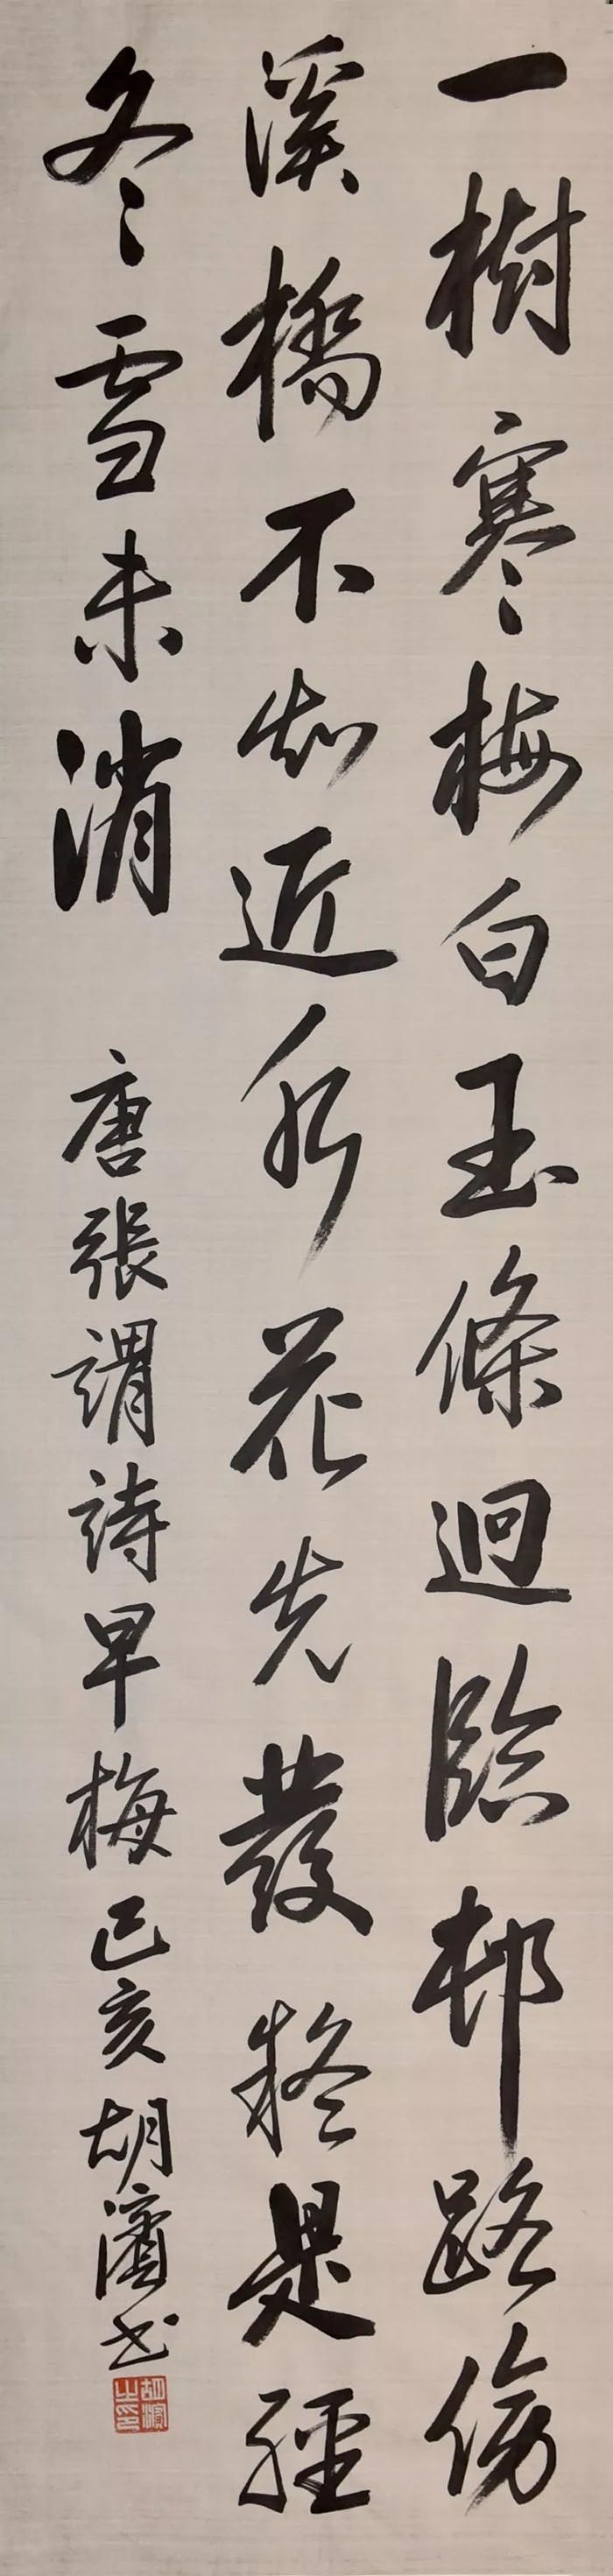 一樹寒梅白玉條迥臨邨路傍
溪橋不知近水花先發疑是經
冬雪未消 唐張謂詩早梅己亥胡濱书
胡濱之印